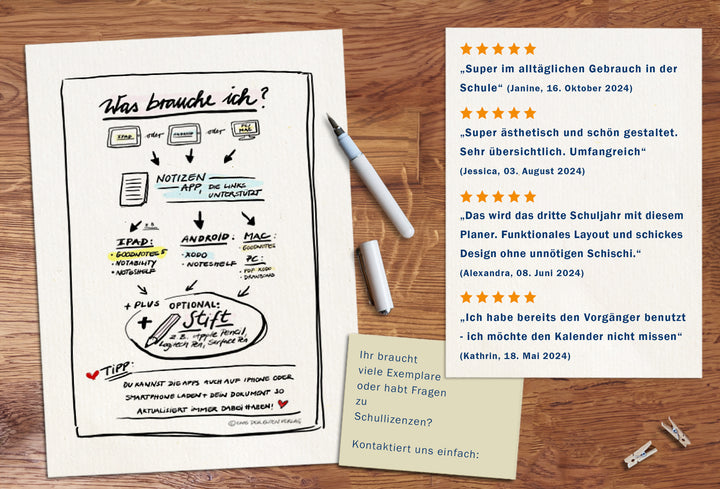 Was brauche ich?
IPAD oder ANDROID oder PC MAC
NOTIZEN
APP, DIE LINKS
UNTERSTÜTZT
z.B.
IPAD:
• GOODNOTES 5
• NOTABILITY
• NOTESHELF
ANDROID:
• XODO
• NOTESHELF
MAC:
• GOODNOTES
PC:
• PDF XODO
• DRAWBOARD
+ PLUS OPTIONAL:
+ Stift
z.B. Apple Pencil,
Logitech Pen, Surface Pen
TIPP:
DU KANNST DIE APPS AUCH AUF IPHONE ODER
SMARTPHONE LADEN + DEIN DOKUMENT SO
AKTUALISIERT IMMER DABEI HABEN!
„Super im alltäglichen Gebrauch in der
Schule“ (Janine, 16. Oktober 2024)
„Super ästhetisch und schön gestaltet.
Sehr übersichtlich. Umfangreich“
(Jessica, 03. August 2024)
„Das wird das dritte Schuljahr mit diesem
Planer. Funktionales Layout und schickes
Design ohne unnötigen Schischi.“
(Alexandra, 08. Juni 2024)
„Ich habe bereits den Vorgänger benutzt
- ich möchte den Kalender nicht missen“
(Kathrin, 18. Mai 2024)
Ihr braucht
viele Exemplare
oder habt Fragen
zu
Schullizenzen?
Kontaktiert uns einfach: